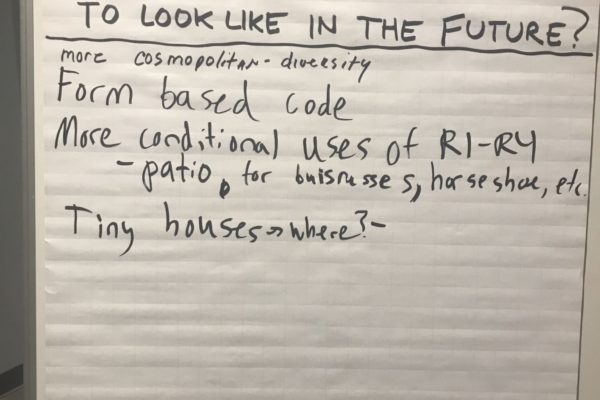 TO LOOK LIKE IN THE FUTURE?
more cosmopolitan - diversity
Form based code
More conditional uses of R1-R4
- patio, for buisnesses, horseshoe, etc.
Tiny houses → where? -